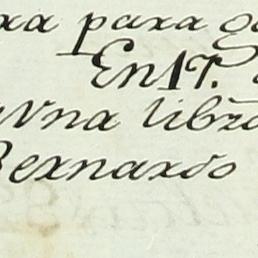 xa para ga
En 17.
Vna libra
Bernardo